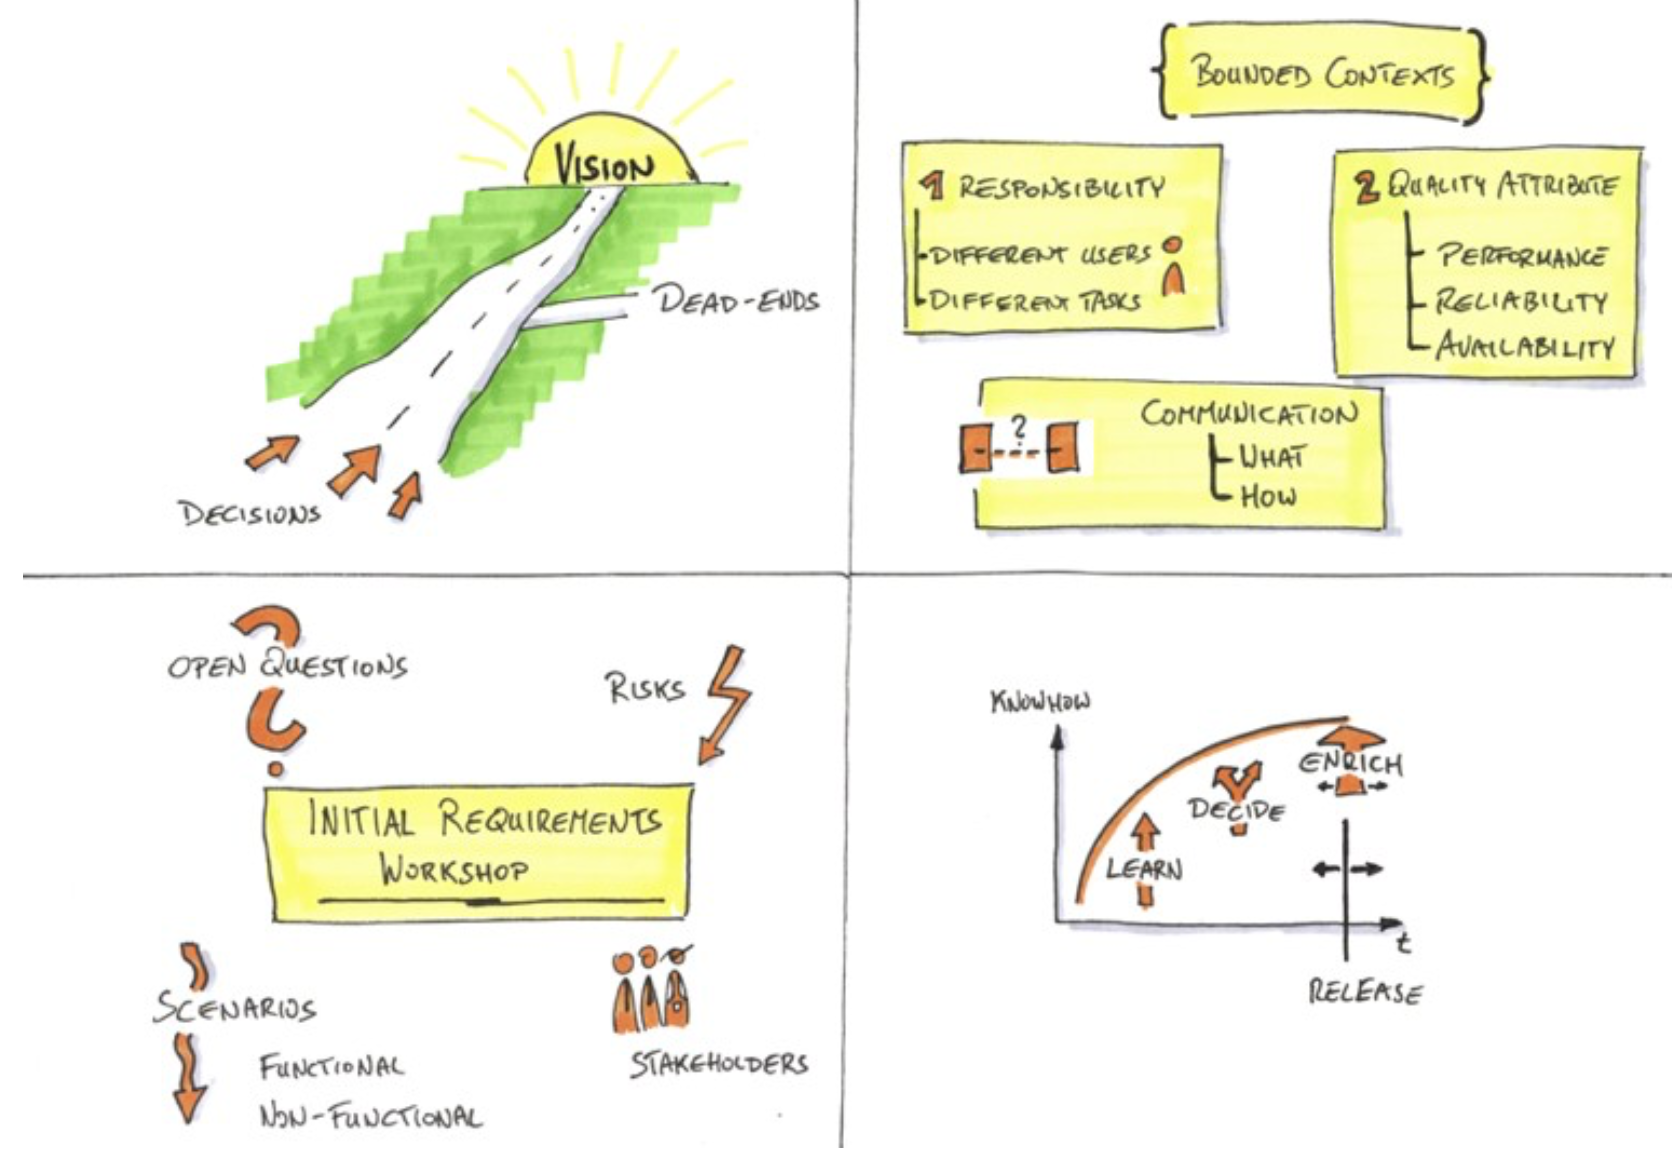 VISION
DEAD-ENDS
DECISIONS
BOUNDED CONTEXTS
1 RESPONSIBILITY
DIFFERENT USERS
DIFFERENT TASKS
2 QUALITY ATTRIBUTE
PERFORMANCE
RELIABILITY
AVAILABILITY
?
COMMUNICATION
WHAT
HOW
OPEN QUESTIONS
RISKS
INITIAL REQUIREMENTS
WORKSHOP
SCENARIOS
FUNCTIONAL
NON-FUNCTIONAL
STAKEHOLDERS
KNOWHOW
ENRICH
DECIDE
LEARN
t
RELEASE